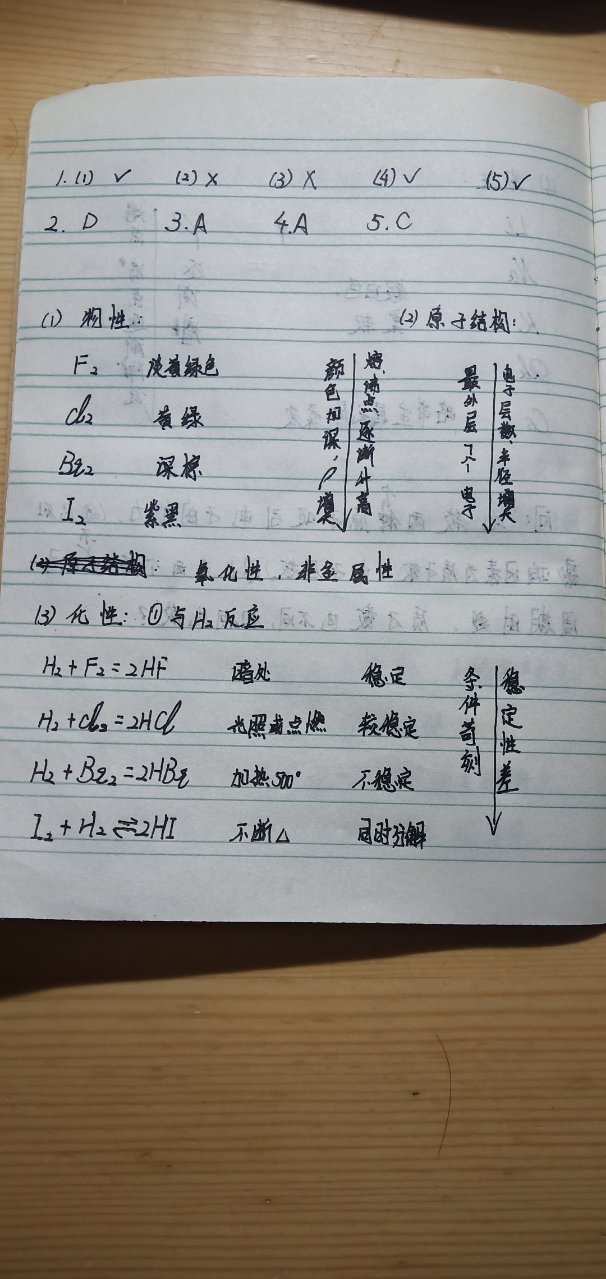 1.(1) ✓ (2) X (3) X (4) ✓ (5) ✓
2. D 3. A 4. A 5. C
(1) 物性: (2) 原子结构:
F₂ 淡黄绿色
Cl₂ 黄绿
Br₂ 深棕
I₂ 紫黑
颜色加深、ρ增大
熔沸点逐渐升高
最外层7个电子
电子层数、半径增大
(2) 原子结构 氧化性、非金属性
(3) 化性: ①与H₂反应
H₂+F₂=2HF 暗处 稳定
H₂+Cl₂=2HCl 光照或点燃 较稳定
H₂+Br₂=2HBr 加热500° 不稳定
I₂+H₂⇌2HI 不断△ 同时分解
条件苛刻
稳定性差